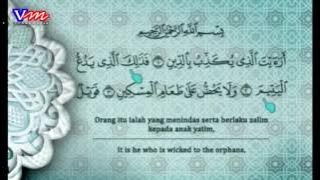 Vm
بِسْمِ اللَّهِ الرَّحْمَٰنِ الرَّحِيمِ
أَرَءَيْتَ الَّذِى يُكَذِّبُ بِالدِّينِ ۝ فَذَٰلِكَ الَّذِى يَدُعُّ
الْيَتِيمَ ۝ وَلَا يَحُضُّ عَلَىٰ طَعَامِ الْمِسْكِينِ ۝ فَوَيْلٌ
Orang itu ialah yang menindas serta berlaku zalim
kepada anak yatim,
It is he who is wicked to the orphans,